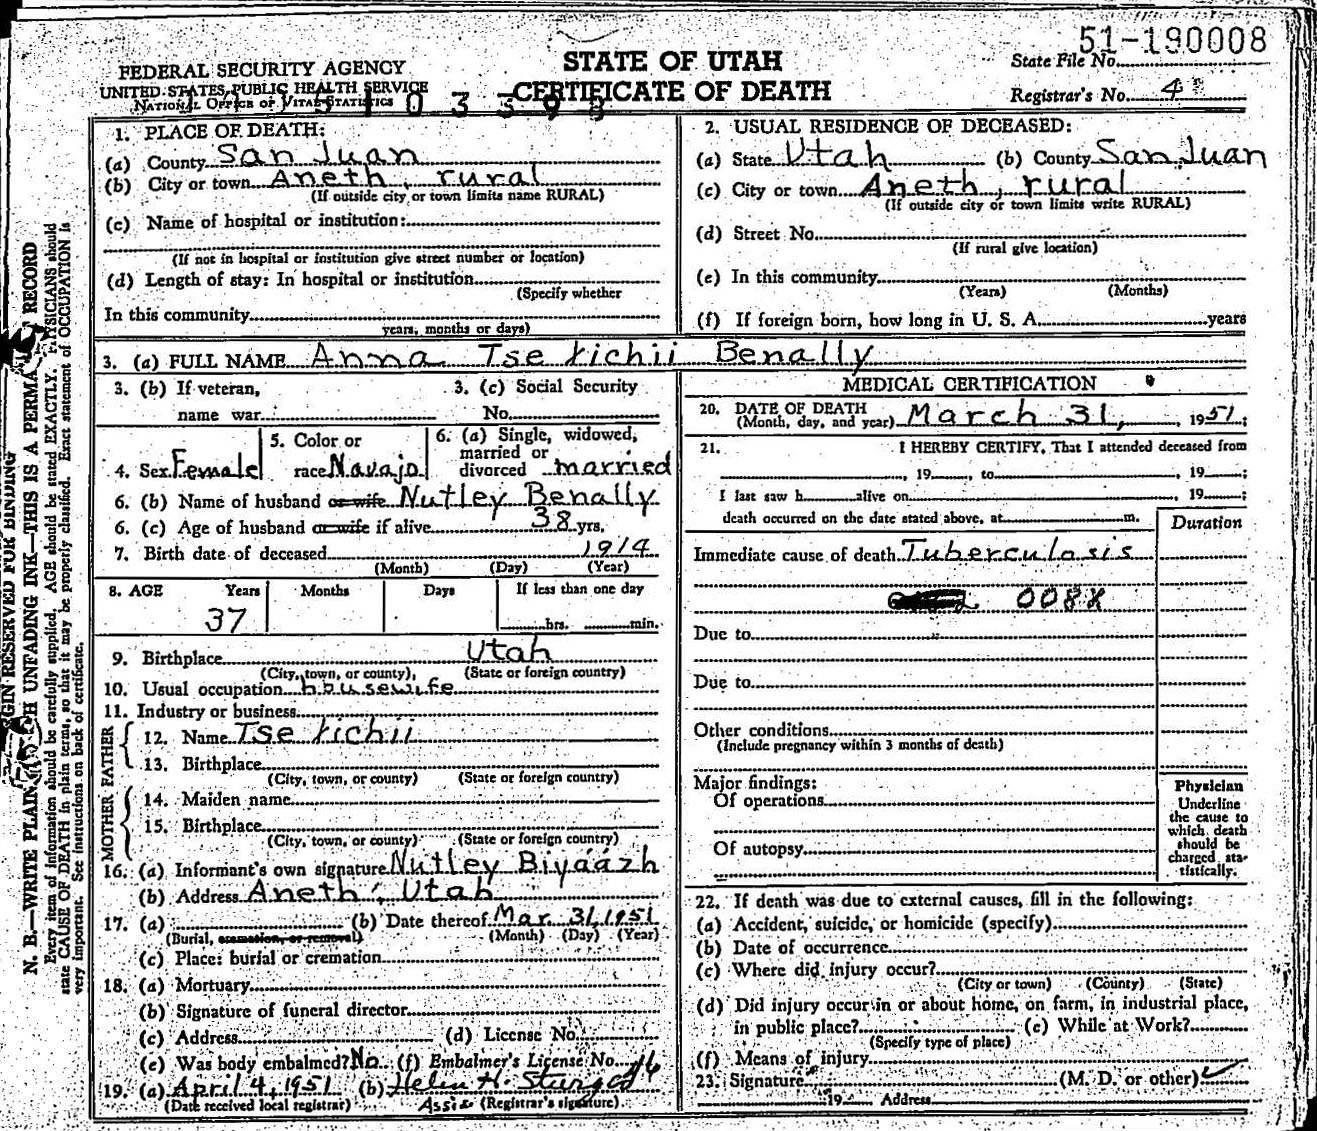 51-190008
State File No.
Registrar's No. 4
FEDERAL SECURITY AGENCY
UNITED STATES PUBLIC HEALTH SERVICE
NATIONAL OFFICE OF VITAL STATISTICS
STATE OF UTAH
CERTIFICATE OF DEATH
1. PLACE OF DEATH:
(a) County San Juan
(b) City or town Aneth, rural
(If outside city or town limits name RURAL)
(c) Name of hospital or institution:
(If not in hospital or institution give street number or location)
(d) Length of stay: In hospital or institution
(Specify whether
In this community
years, months or days)
2. USUAL RESIDENCE OF DECEASED:
(a) State Utah (b) County San Juan
(c) City or town Aneth, rural
(If outside city or town limits write RURAL)
(d) Street No.
(If rural give location)
(e) In this community
(Years) (Months)
(f) If foreign born, how long in U. S. A. years
3. (a) FULL NAME Anna Tse Łichii Benally
3. (b) If veteran,
name war
3. (c) Social Security
No.
4. Sex Female
5. Color or
race Navajo
6. (a) Single, widowed,
married or
divorced married
6. (b) Name of husband or wife Nutley Benally
6. (c) Age of husband or wife if alive 38 yrs.
7. Birth date of deceased 1914
(Month) (Day) (Year)
8. AGE Years Months Days If less than one day
37 hrs. min.
9. Birthplace Utah
(City, town, or county), (State or foreign country)
10. Usual occupation housewife
11. Industry or business
FATHER
12. Name Tse Łichii
13. Birthplace
(City, town, or county) (State or foreign country)
MOTHER
14. Maiden name
15. Birthplace
(City, town, or county) (State or foreign country)
16. (a) Informant's own signature Nutley Biyaázh
(b) Address Aneth, Utah
17. (a) (b) Date thereof Mar. 31, 1951
(Burial, cremation, or removal) (Month) (Day) (Year)
(c) Place: burial or cremation
18. (a) Mortuary
(b) Signature of funeral director
(c) Address (d) License No.
(e) Was body embalmed? No (f) Embalmer's License No.
19. (a) April 4, 1951 (b) Helen H. Sturges
(Date received local registrar) (Registrar's signature)
MEDICAL CERTIFICATION
20. DATE OF DEATH
(Month, day, and year) March 31, 1951;
21. I HEREBY CERTIFY, That I attended deceased from
, 19 , to , 19 ;
I last saw h alive on , 19 ;
death occurred on the date stated above, at m.
Duration
Immediate cause of death Tuberculosis
008X
Due to
Due to
Other conditions
(Include pregnancy within 3 months of death)
Major findings:
Of operations
Of autopsy
Physician
Underline
the cause to
which death
should be
charged sta-
tistically.
22. If death was due to external causes, fill in the following:
(a) Accident, suicide, or homicide (specify)
(b) Date of occurrence
(c) Where did injury occur?
(City or town) (County) (State)
(d) Did injury occur in or about home, on farm, in industrial place,
in public place? (e) While at Work?
(Specify type of place)
(f) Means of injury
23. Signature (M. D. or other)
19 Address
N. B.—WRITE PLAINLY UNFADING INK—THIS IS A PERMA RECORD
Every item of information should be carefully supplied. AGE should be stated EXACTLY. PHYSICIANS should
state CAUSE OF DEATH in plain terms, so that it may be properly classified. Exact statement of OCCUPATION is
very important. See instructions on back of certificate.